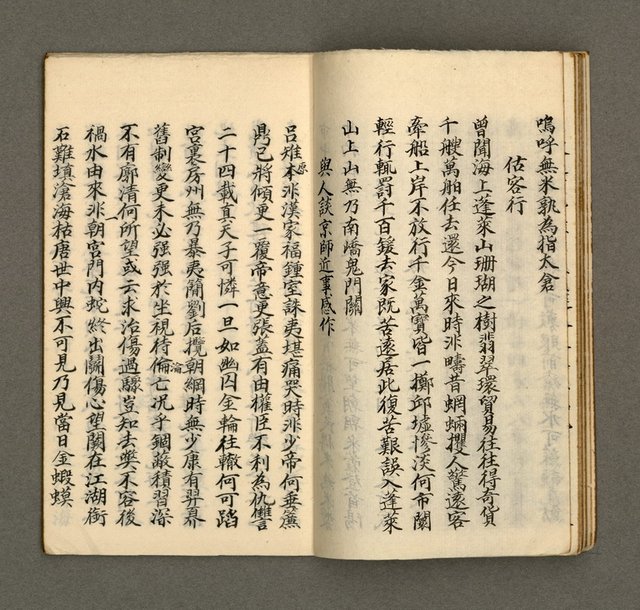 嗚呼無米孰為指太倉
估客行
曾聞海上蓬萊山珊瑚之樹翡翠環貿易往往得奇貨
千艘萬舶任去還今日來時非疇昔蝄蜽攫人驚遠客
牽船上岸不放行千金萬寶皆一擲邱墟慘淡何市闤
輕行輒罰千百鍰去家既苦遠居此復苦艱誤入蓬萊
山上山無乃南嶠鬼門關
與人談京師近事感作
呂雉原本非漢家福鍾室誅夷堪痛哭時非少帝何垂簾
鼎已將傾更一覆帝意更張蓋有由權臣不利為仇讐
二十四載真天子可憐一旦如幽囚金輪往轍何可蹈
宮裏房州無乃暴夷簡劉后攬朝綱時無少康有羿奡
舊制變更未必强强於坐視待倫淪亡况乎錮蔽積習深
不有廓清何所望或云求治傷過驟豈知去弊不容後
禍水由來非朝宮門內蛇終出鬭傷心望闕在江湖銜
石難填滄海枯唐世中興不可見乃見當日金蝦蟆